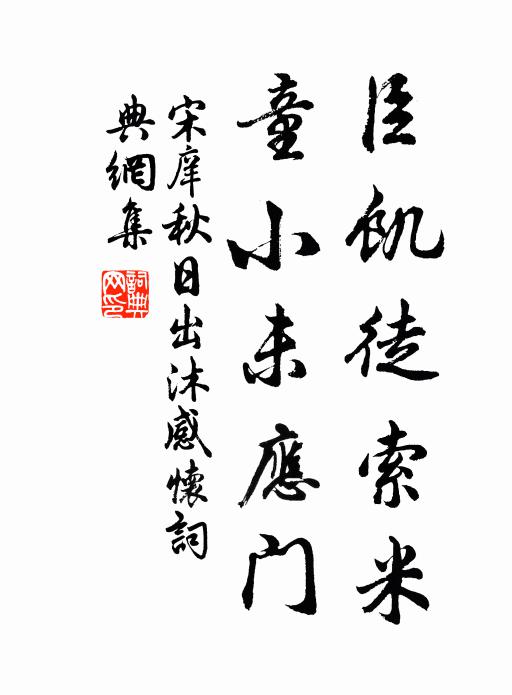 臣飢徒索米
童小未應門
宋庠秋日出沐感懷詞
典網集
詞典
网印